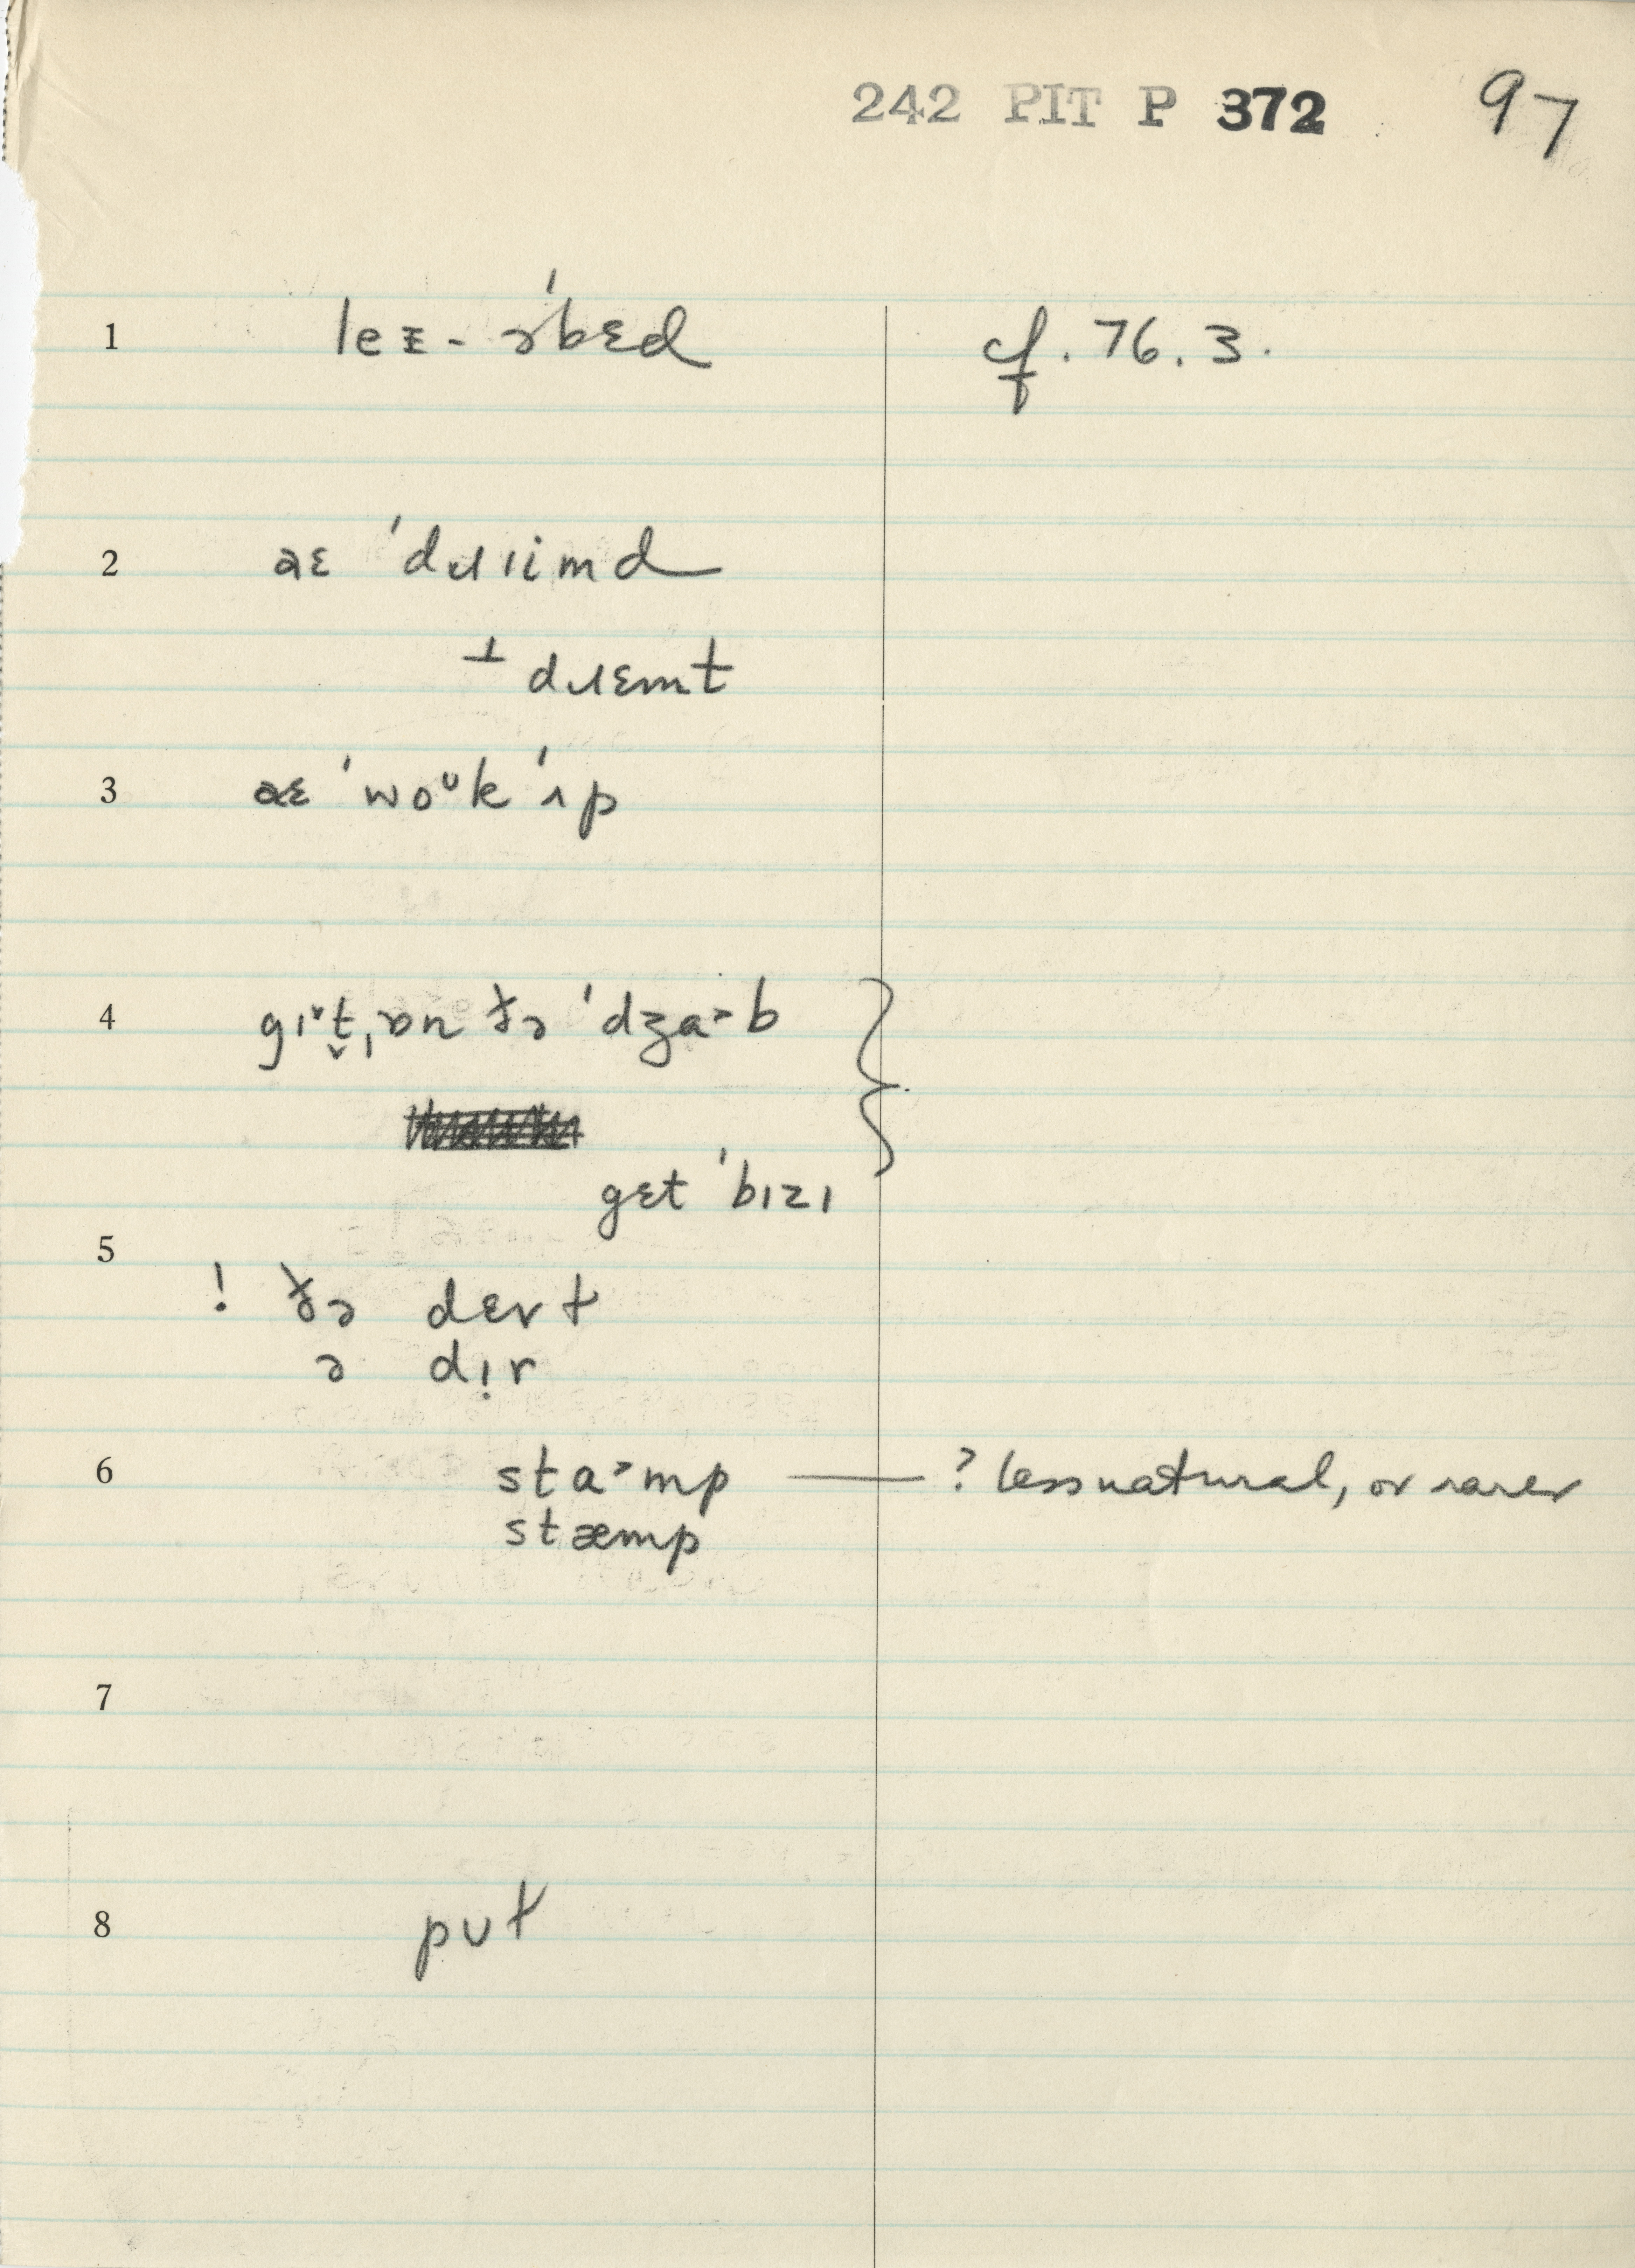 242 PIT P 372 97
1 leᵻ- ə'bɛd cf. 76.3.
2 aɛ 'dɹiimd
⊥ dɹɛmt
3 aɛ 'woᶷk 'ʌp
4 gɪ˅t̬ˌɒn ðə 'dʒa˃b }
gɛt 'bɪzɪ
5
! ðə dɛrt
ə dı̣r
6 sta˃mp — ? less natural, or rarer
stæmp
7
8 pʊt